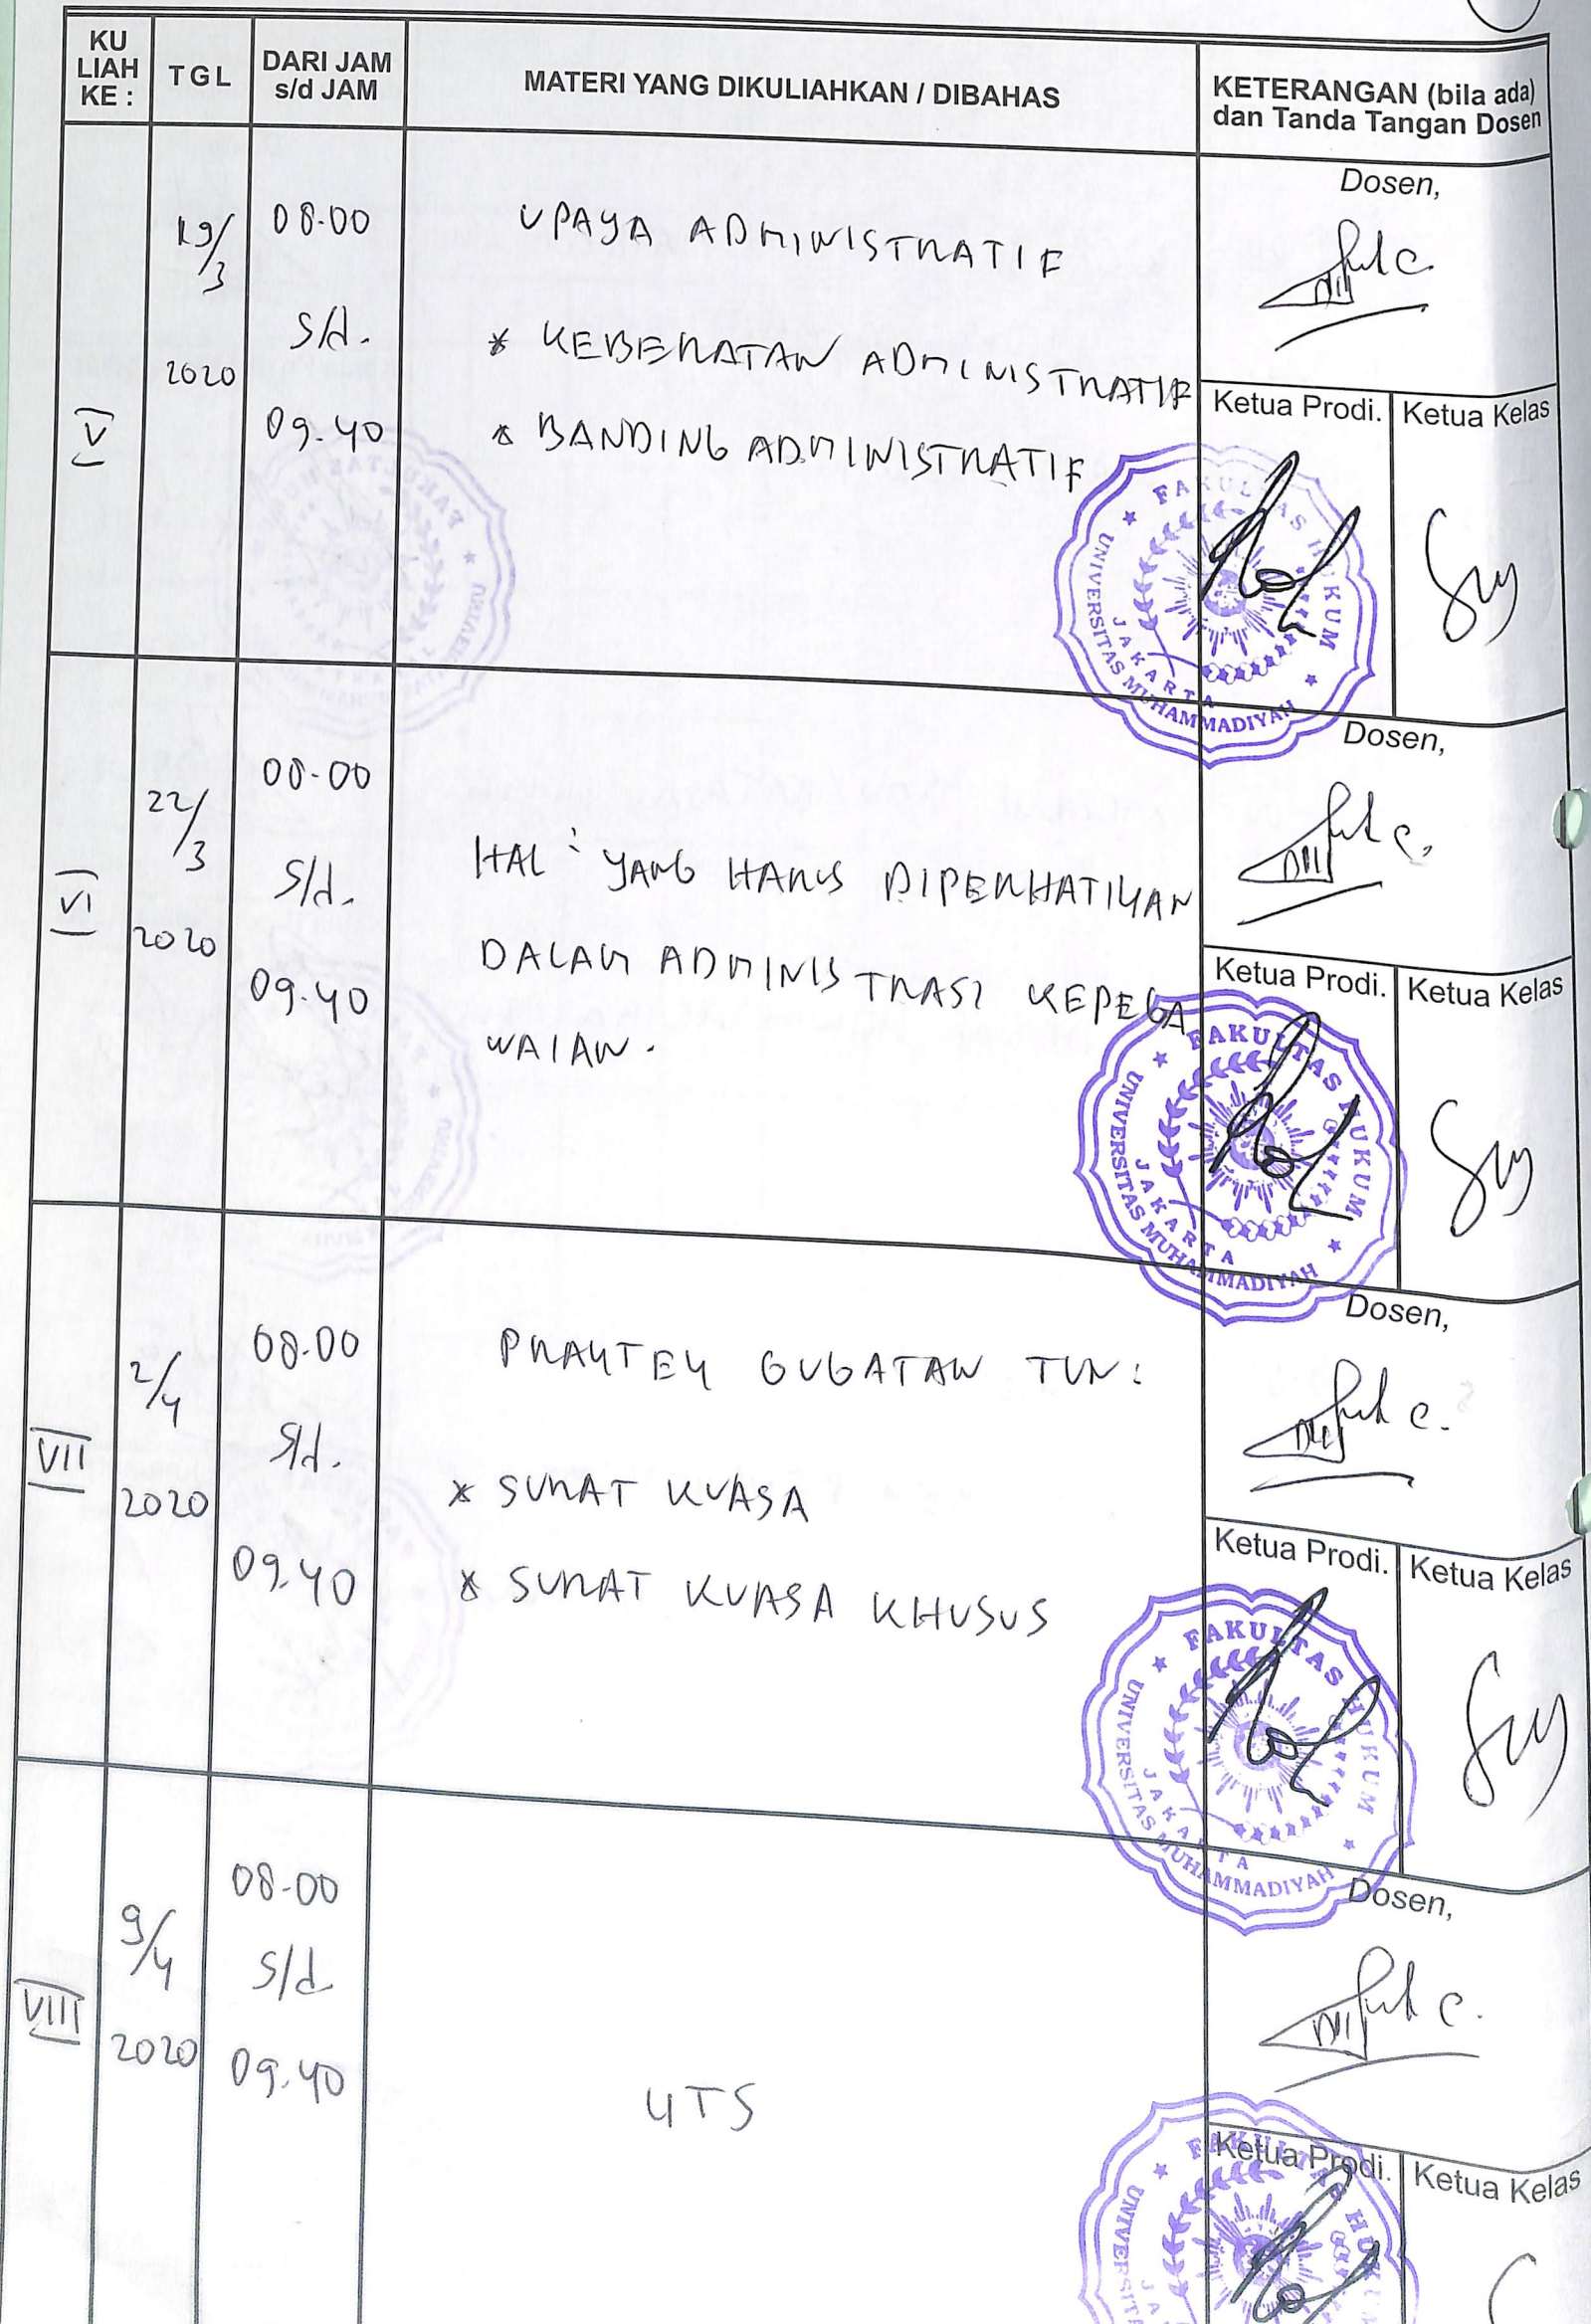 KU
LIAH
KE :
TGL
DARI JAM
s/d JAM
MATERI YANG DIKULIAHKAN / DIBAHAS
KETERANGAN (bila ada)
dan Tanda Tangan Dosen
V
19/3
2020
08.00
s/d.
09.40
UPAYA ADMINISTRATIF
* KEBERATAN ADMINISTRATIF
* BANDING ADMINISTRATIF
Dosen,
Ketua Prodi.
Ketua Kelas
FAKULTAS HUKUM
UNIVERSITAS MUHAMMADIYAH
JAKARTA
VI
22/3
2020
08.00
s/d.
09.40
HAL² YANG HARUS DIPERHATIKAN
DALAM ADMINISTRASI KEPEGA
WAIAN.
Dosen,
Ketua Prodi.
Ketua Kelas
FAKULTAS HUKUM
UNIVERSITAS MUHAMMADIYAH
JAKARTA
VII
2/4
2020
08.00
s/d.
09.40
PRAKTEK GUGATAN TUN :
* SURAT KUASA
* SURAT KUASA KHUSUS
Dosen,
Ketua Prodi.
Ketua Kelas
FAKULTAS HUKUM
UNIVERSITAS MUHAMMADIYAH
JAKARTA
VIII
9/4
2020
08.00
s/d
09.40
UTS
Dosen,
Ketua Prodi.
Ketua Kelas